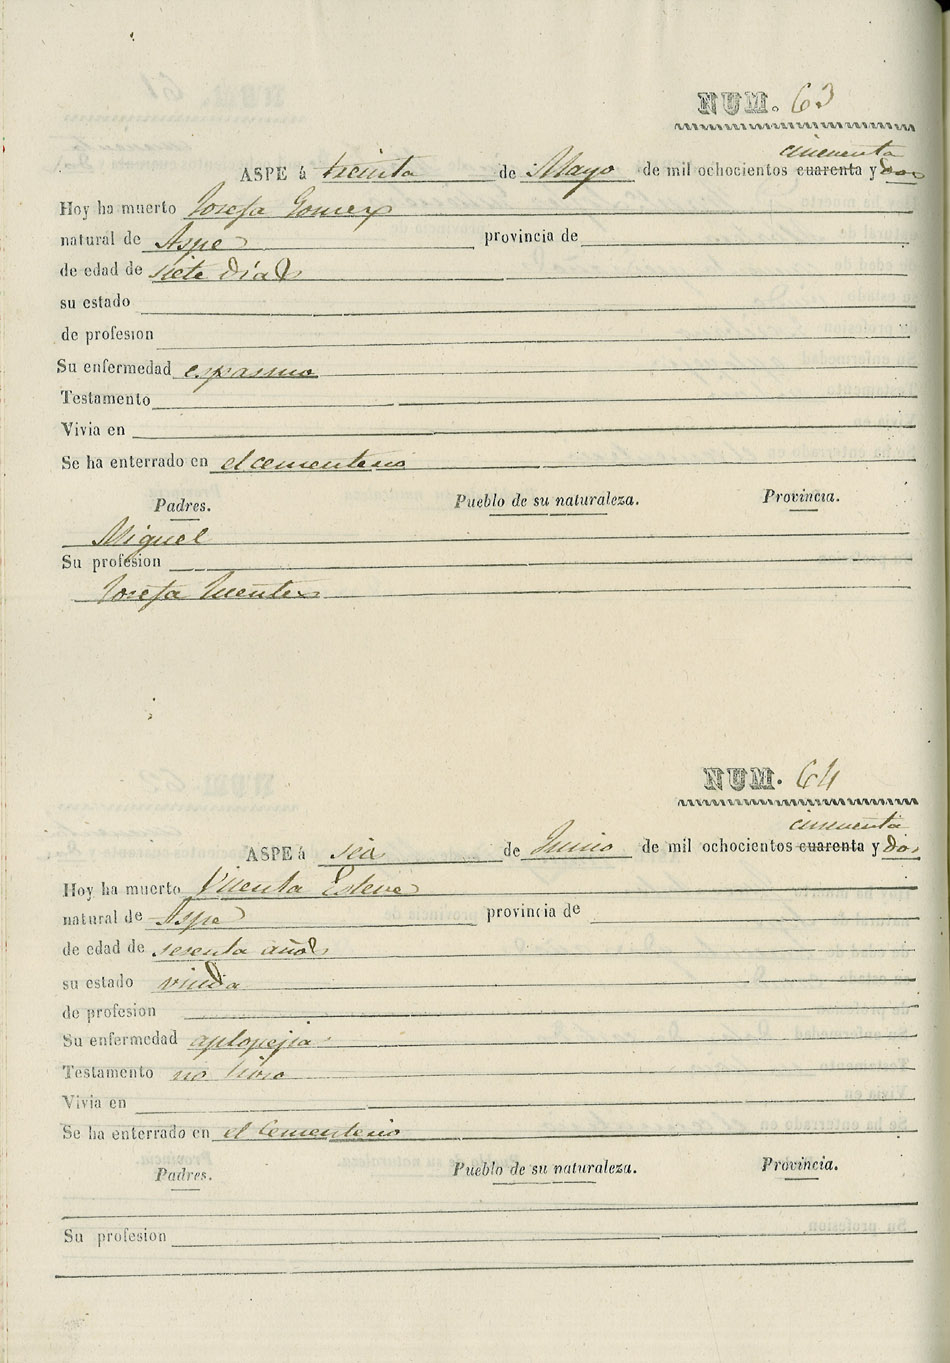 NUM. 63
cincuenta
ASPE á treinta de Mayo de mil ochocientos cuarenta y dos
Hoy ha muerto Josefa Gomez
natural de Aspe provincia de
de edad de siete días
su estado
de profesion
Su enfermedad espasmo
Testamento
Vivia en
Se ha enterrado en el cementerio
Padres. Pueblo de su naturaleza. Provincia.
Miguel
Su profesion
Josefa Fuentes
NUM. 64
cincuenta
ASPE á seis de Junio de mil ochocientos cuarenta y dos
Hoy ha muerto Vicenta Esteve
natural de Aspe provincia de
de edad de sesenta años
su estado viuda
de profesion
Su enfermedad aplopejia
Testamento no hiso
Vivia en
Se ha enterrado en el Cementerio
Padres. Pueblo de su naturaleza. Provincia.
Su profesion